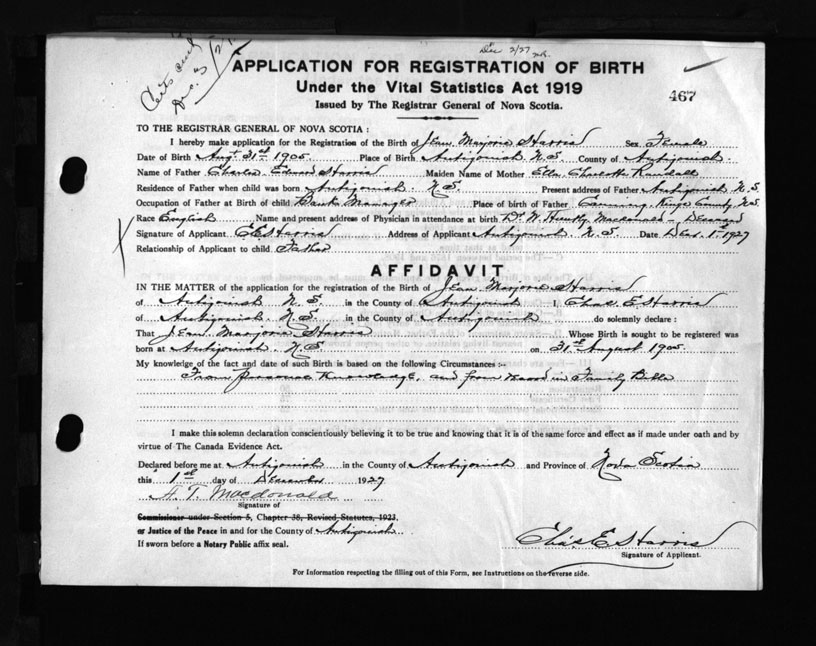 Certs and
Dec. 3/27
Dec 2/27
APPLICATION FOR REGISTRATION OF BIRTH
Under the Vital Statistics Act 1919
467
Issued by The Registrar General of Nova Scotia.
TO THE REGISTRAR GENERAL OF NOVA SCOTIA :
I hereby make application for the Registration of the Birth of Jean Marjorie Harris Sex Female
Date of Birth Aug. 31st 1905. Place of Birth Antigonish N.S. County of Antigonish
Name of Father Charles Edward Harris Maiden Name of Mother Ella Charlotte Randall
Residence of Father when child was born Antigonish. N.S. Present address of Father Antigonish N.S.
Occupation of Father at Birth of child Bank Manager Place of birth of Father Canning, Kings County, N.S.
Race English Name and present address of Physician in attendance at birth Dr W. Huntly Macdonald - Deceased
Signature of Applicant C E Harris Address of Applicant Antigonish. N.S. Date Dec. 1st 1927
Relationship of Applicant to child Father
AFFIDAVIT
IN THE MATTER of the application for the registration of the Birth of Jean Marjorie Harris
of Antigonish N.S. in the County of Antigonish I, Chas. E Harris
of Antigonish. N.S. in the County of Antigonish do solemnly declare :
That Jean Marjorie Harris Whose Birth is sought to be registered was
born at Antigonish. N.S on 31st August 1905.
My knowledge of the fact and date of such Birth is based on the following Circumstances :--
From personal Knowledge, and from record in Family Bible
I make this solemn declaration conscientiously believing it to be true and knowing that it is of the same force and effect as if made under oath and by
virtue of The Canada Evidence Act.
Declared before me at Antigonish in the County of Antigonish and Province of Nova Scotia
this 1st day of December 1927
Macdonald
Signature of
Commissioner under Section 5, Chapter 38, Revised Statutes, 1923,
or Justice of the Peace in and for the County of Antigonish
If sworn before a Notary Public affix seal.
Chas E Harris
Signature of Applicant.
For Information respecting the filling out of this Form, see Instructions on the reverse side.